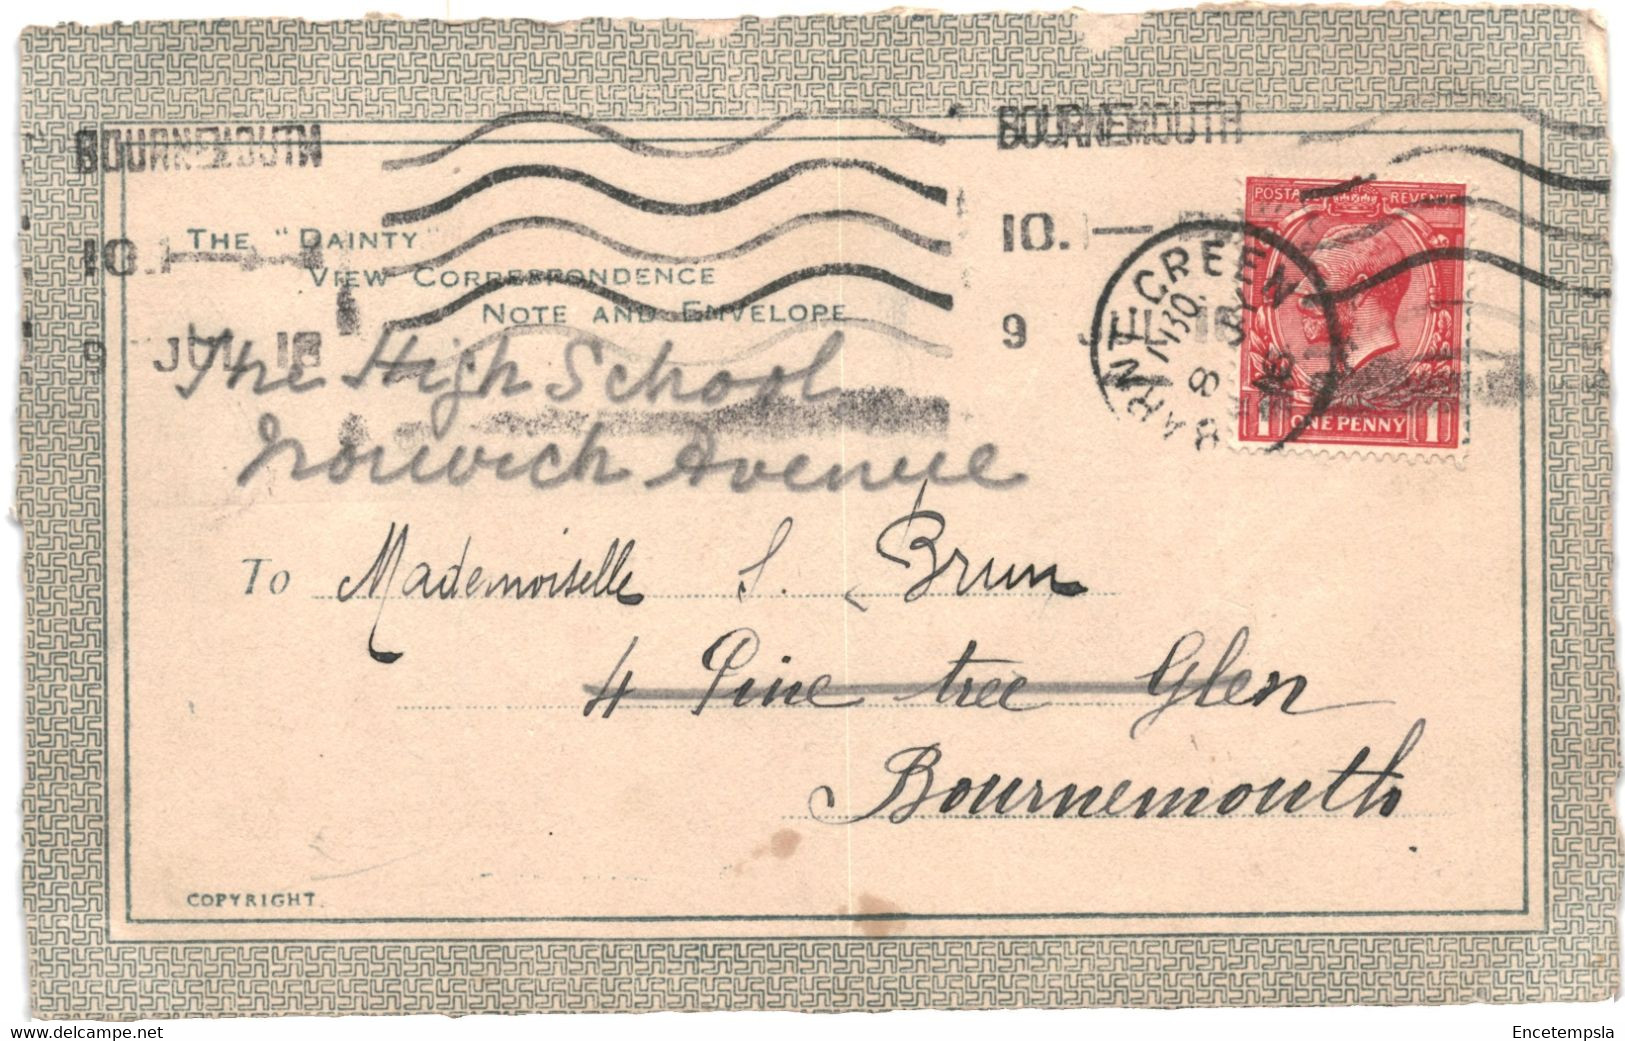 BOURNEMOUTH
BOURNEMOUTH
10.
10.
9 JUL 16
9
THE "DAINTY"
VIEW CORRESPONDENCE
NOTE AND ENVELOPE
POSTAGE REVENUE
1 ONE PENNY 1
BARNT GREEN
The High School
Norwich Avenue
To Mademoiselle S. Brun
4 Pine tree Glen
Bournemouth
COPYRIGHT.
www.delcampe.net
Encetempsla